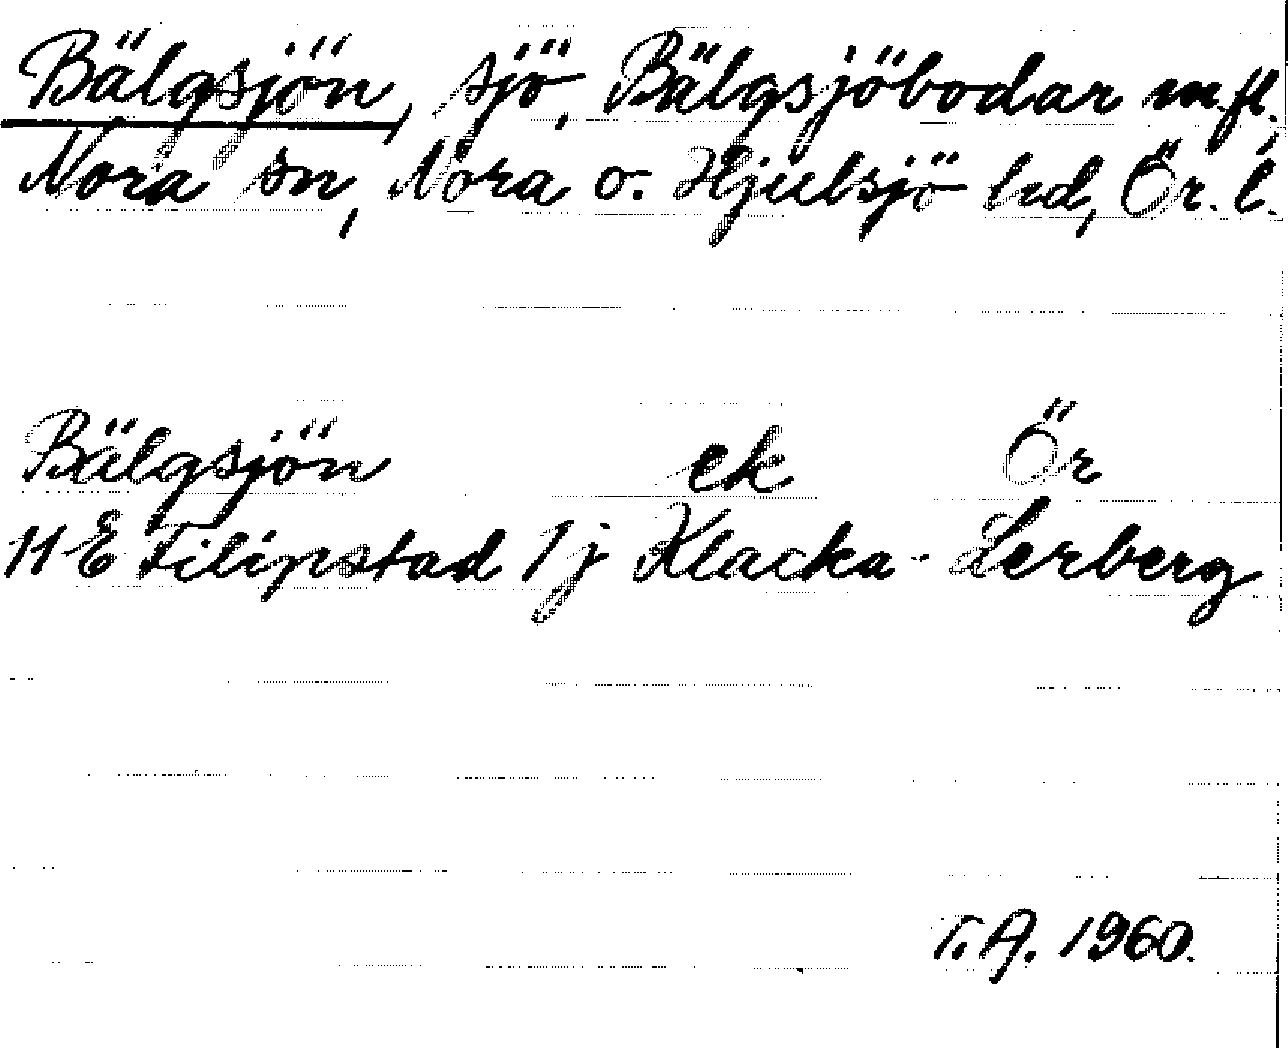 Bälgsjön, sjö, Bälgsjöbodar m.fl.,
Nora sn, Nora o. Hjulsjö hd, Ör. l.
Bälgsjön ek Ör
11 E Filipstad 1j Klacka-Lerberg
T.A. 1960.